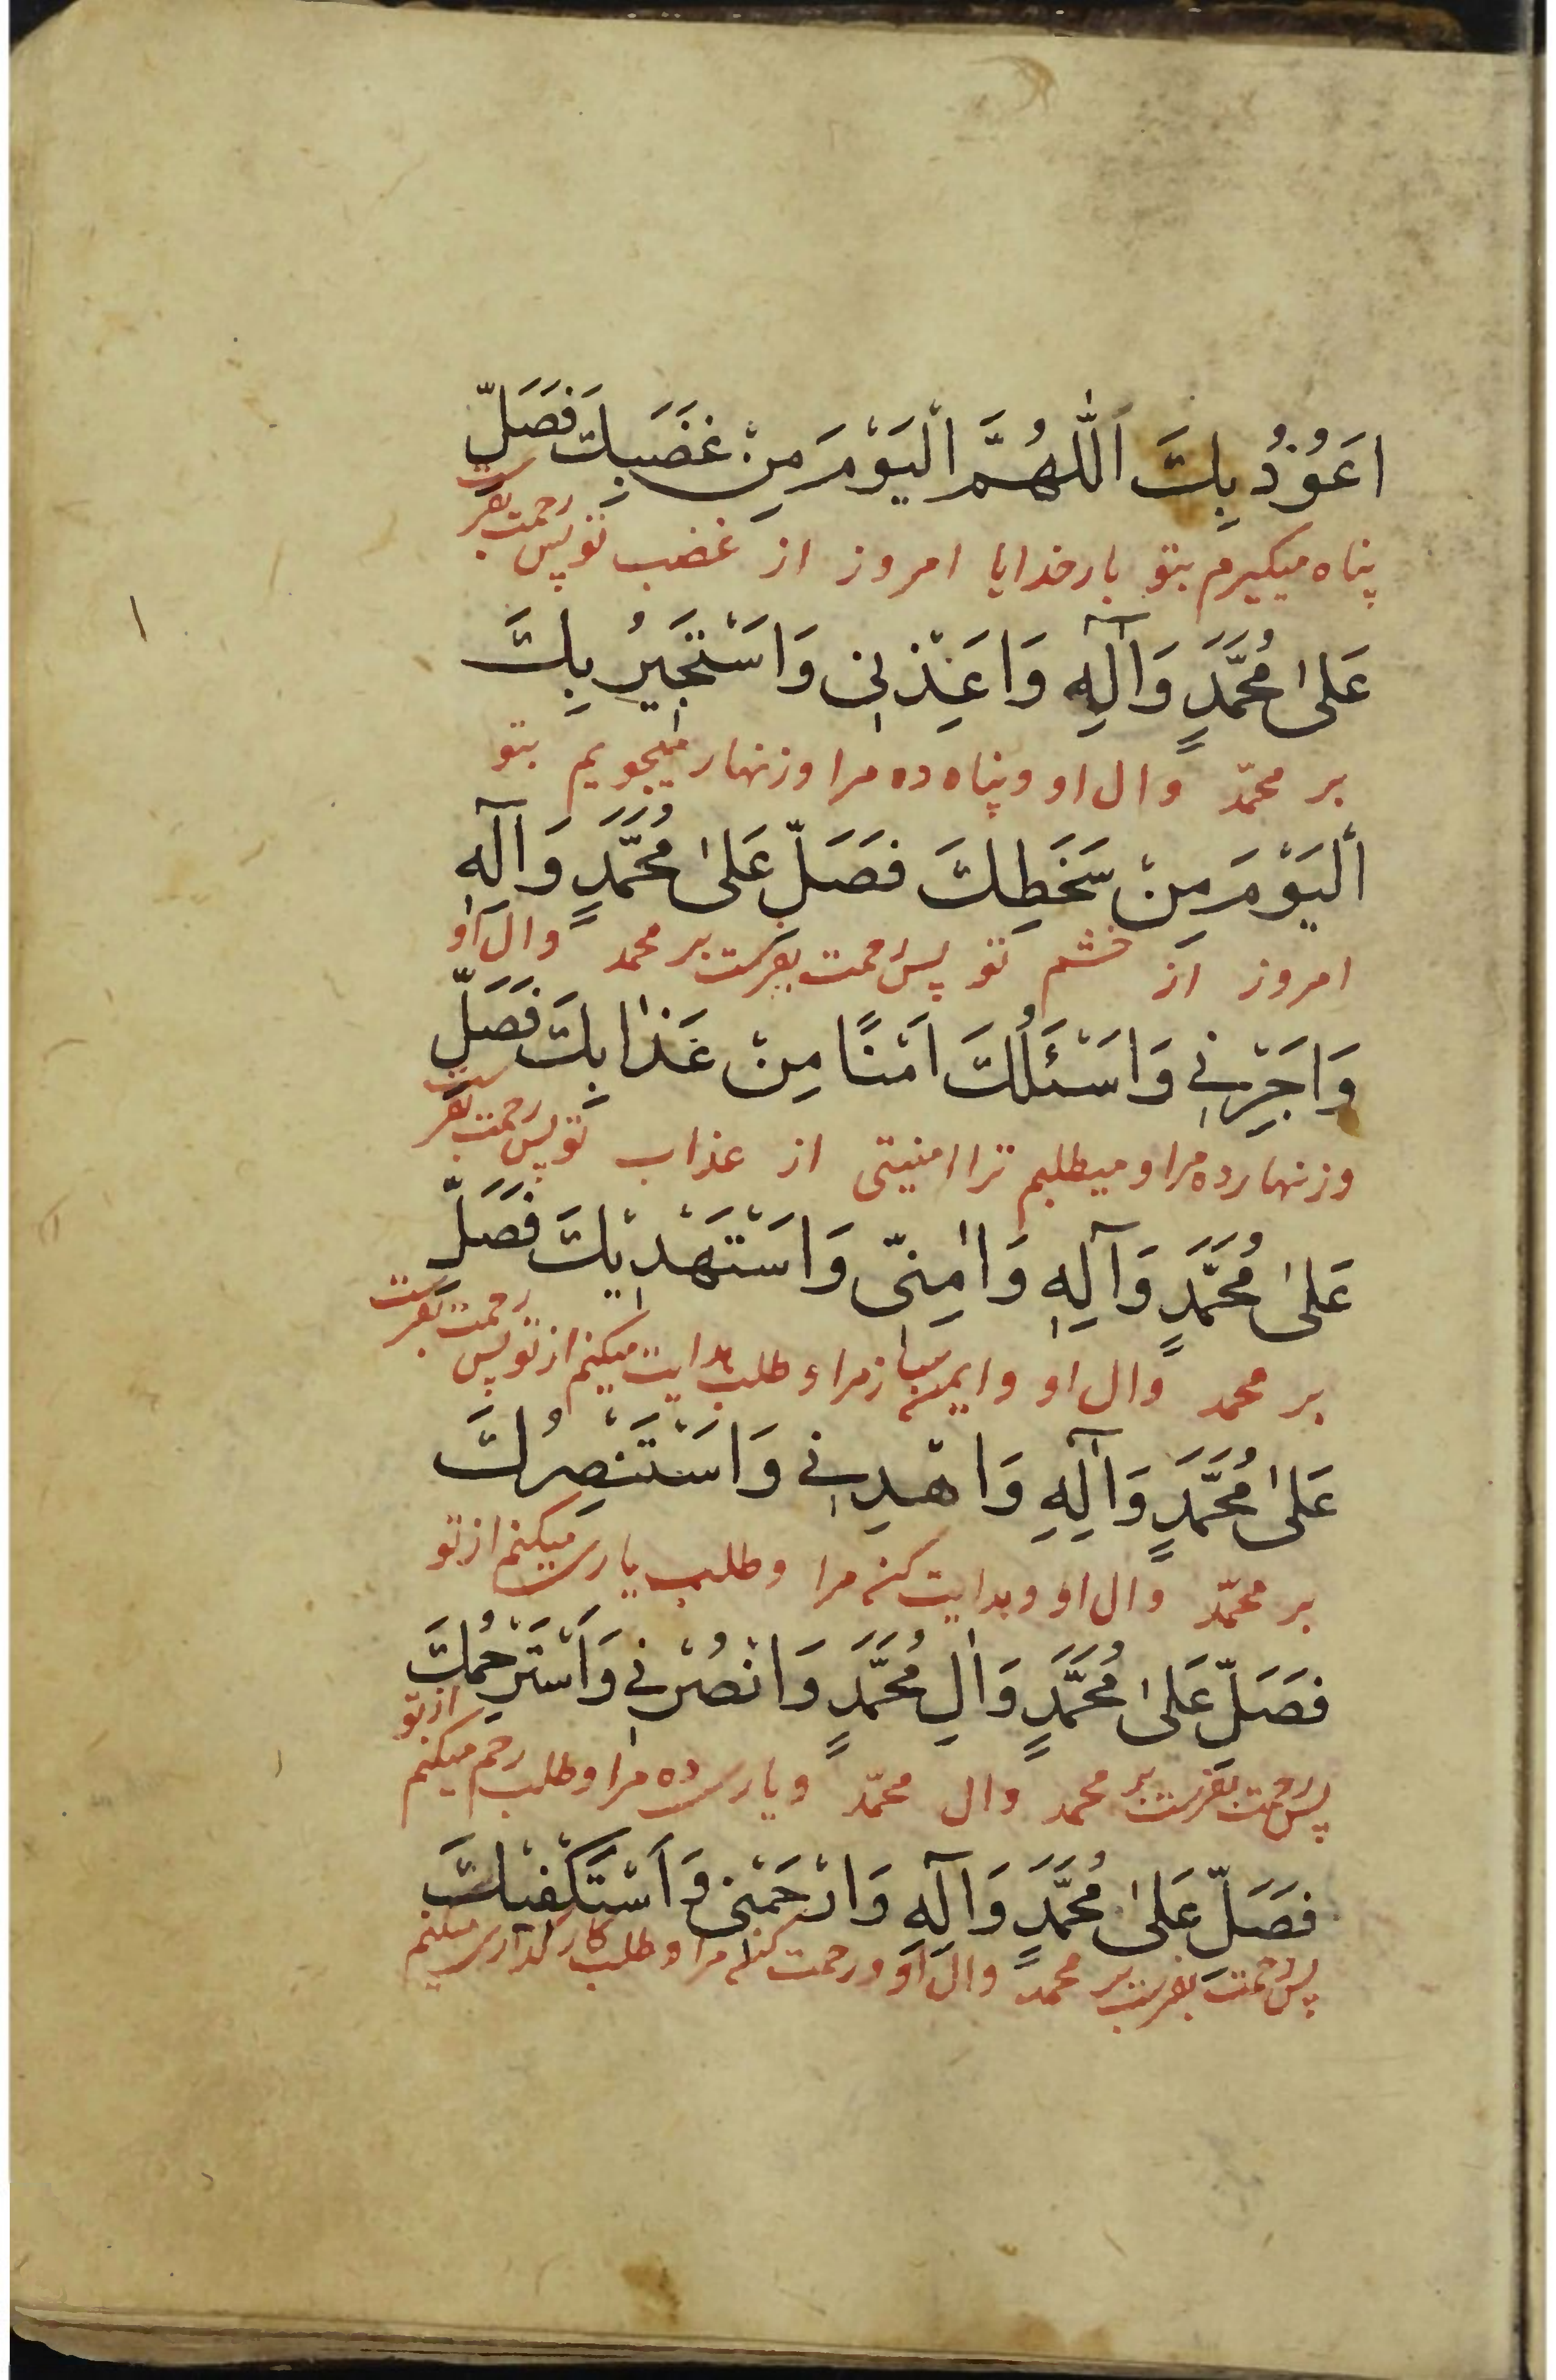 اَعُوْذُ بِكَ اَللّٰهُمَّ الْيَوْمَ مِنْ غَضَبِكَ فَصَلِّ
پناه میگیرم بتو بارخدایا امروز از غضب تو پس رحمت بفرست
عَلىٰ مُحَمَّدٍ وَآلِهِ وَاَعِذْنِی وَاَسْتَجِيْرُ بِكَ
بر محمّد وال او و پناه ده مرا و زنهار میجویم بتو
اَلْيَوْمَ مِنْ سَخَطِكَ فَصَلِّ عَلىٰ مُحَمَّدٍ وَآلِهِ
امروز از خشم تو پس رحمت بفرست بر محمد وال او
وَاَجِرْنِي وَاَسْئَلُكَ اَمْنًا مِنْ عَذٰابِكَ فَصَلِّ
و زنهار ده مرا و میطلبم ترا امنیتی از عذاب تو پس رحمت بفرست
عَلىٰ مُحَمَّدٍ وَآلِهِ وَاٰمِنِّی وَاَسْتَهْدِيْكَ فَصَلِّ
بر محمد وال او و ایمن ساز مرا و طلب هدایت میکنم از تو پس رحمت بفرست
عَلىٰ مُحَمَّدٍ وَآلِهِ وَاهْدِنِي وَاَسْتَنْصِرُكَ
بر محمّد وال او و هدایت کن مرا و طلب یاری میکنم از تو
فَصَلِّ عَلىٰ مُحَمَّدٍ وَاٰلِ مُحَمَّدٍ وَانْصُرْنِي وَاَسْتَرْحِمُكَ
پس رحمت بفرست بر محمد وال محمّد و یاری ده مرا و طلب رحم میکنم از تو
فَصَلِّ عَلىٰ مُحَمَّدٍ وَآلِهِ وَارْحَمْنِی وَاَسْتَكْفِيْكَ
پس رحمت بفرست بر محمد وال او و رحمت کن مرا و طلب کارگذاری میکنم